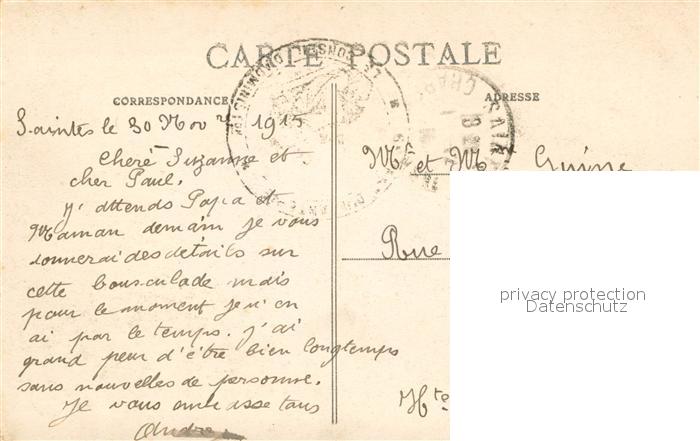 CARTE POSTALE
CORRESPONDANCE
ADRESSE
Saintes le 30 Nov 1915
Cheré Suzanne et
cher Paul.
J'attends Papa et
Maman demain je vous
donnerai des details sur
cette bousculade mais
pour le moment je n'en
ai par le temps. J'ai
grand peur d'être bien longtemps
sans nouvelles de personne.
Je vous embrasse tous
André
Mr et Me Guisse
Rue
Hte
privacy protection
Datenschutz